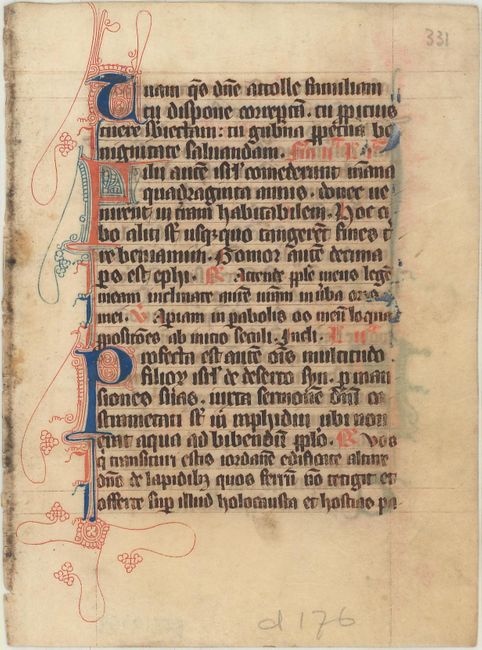 331
Tuam qs dne attolle familiam
tu dispone correptam. tu propicius
tuere subiectam: tu gubna perpetua be
nignitate saluandam.
Filii autē isrl comederunt manna
quadraginta annis. donec ue
nirent in trām habitabilem. Hoc ci
bo aliti st usqzquo tangerēt fines t
re chanaam. Gomor autē decima
pars est ephi. R Attende pple meus legē
meam inclinate aurē urām in uba oris
mei. V Apiam in pabolis os meū loquar
ppositōes ab initio seculi. Incli.
Profecta est autē oīs multitudo
filioꝝ isrl de deserto syn. p man
siones suas. iuxta sermonē dnī ca
strametati st in raphidim ubi non
erat aqua ad bibendū pplo. R Vos
q transituri estis iordanē edificate altare
dno de lapidibz quos ferrū nō tetigit et
offerte sup illud holocausta et hostias pa
d 176